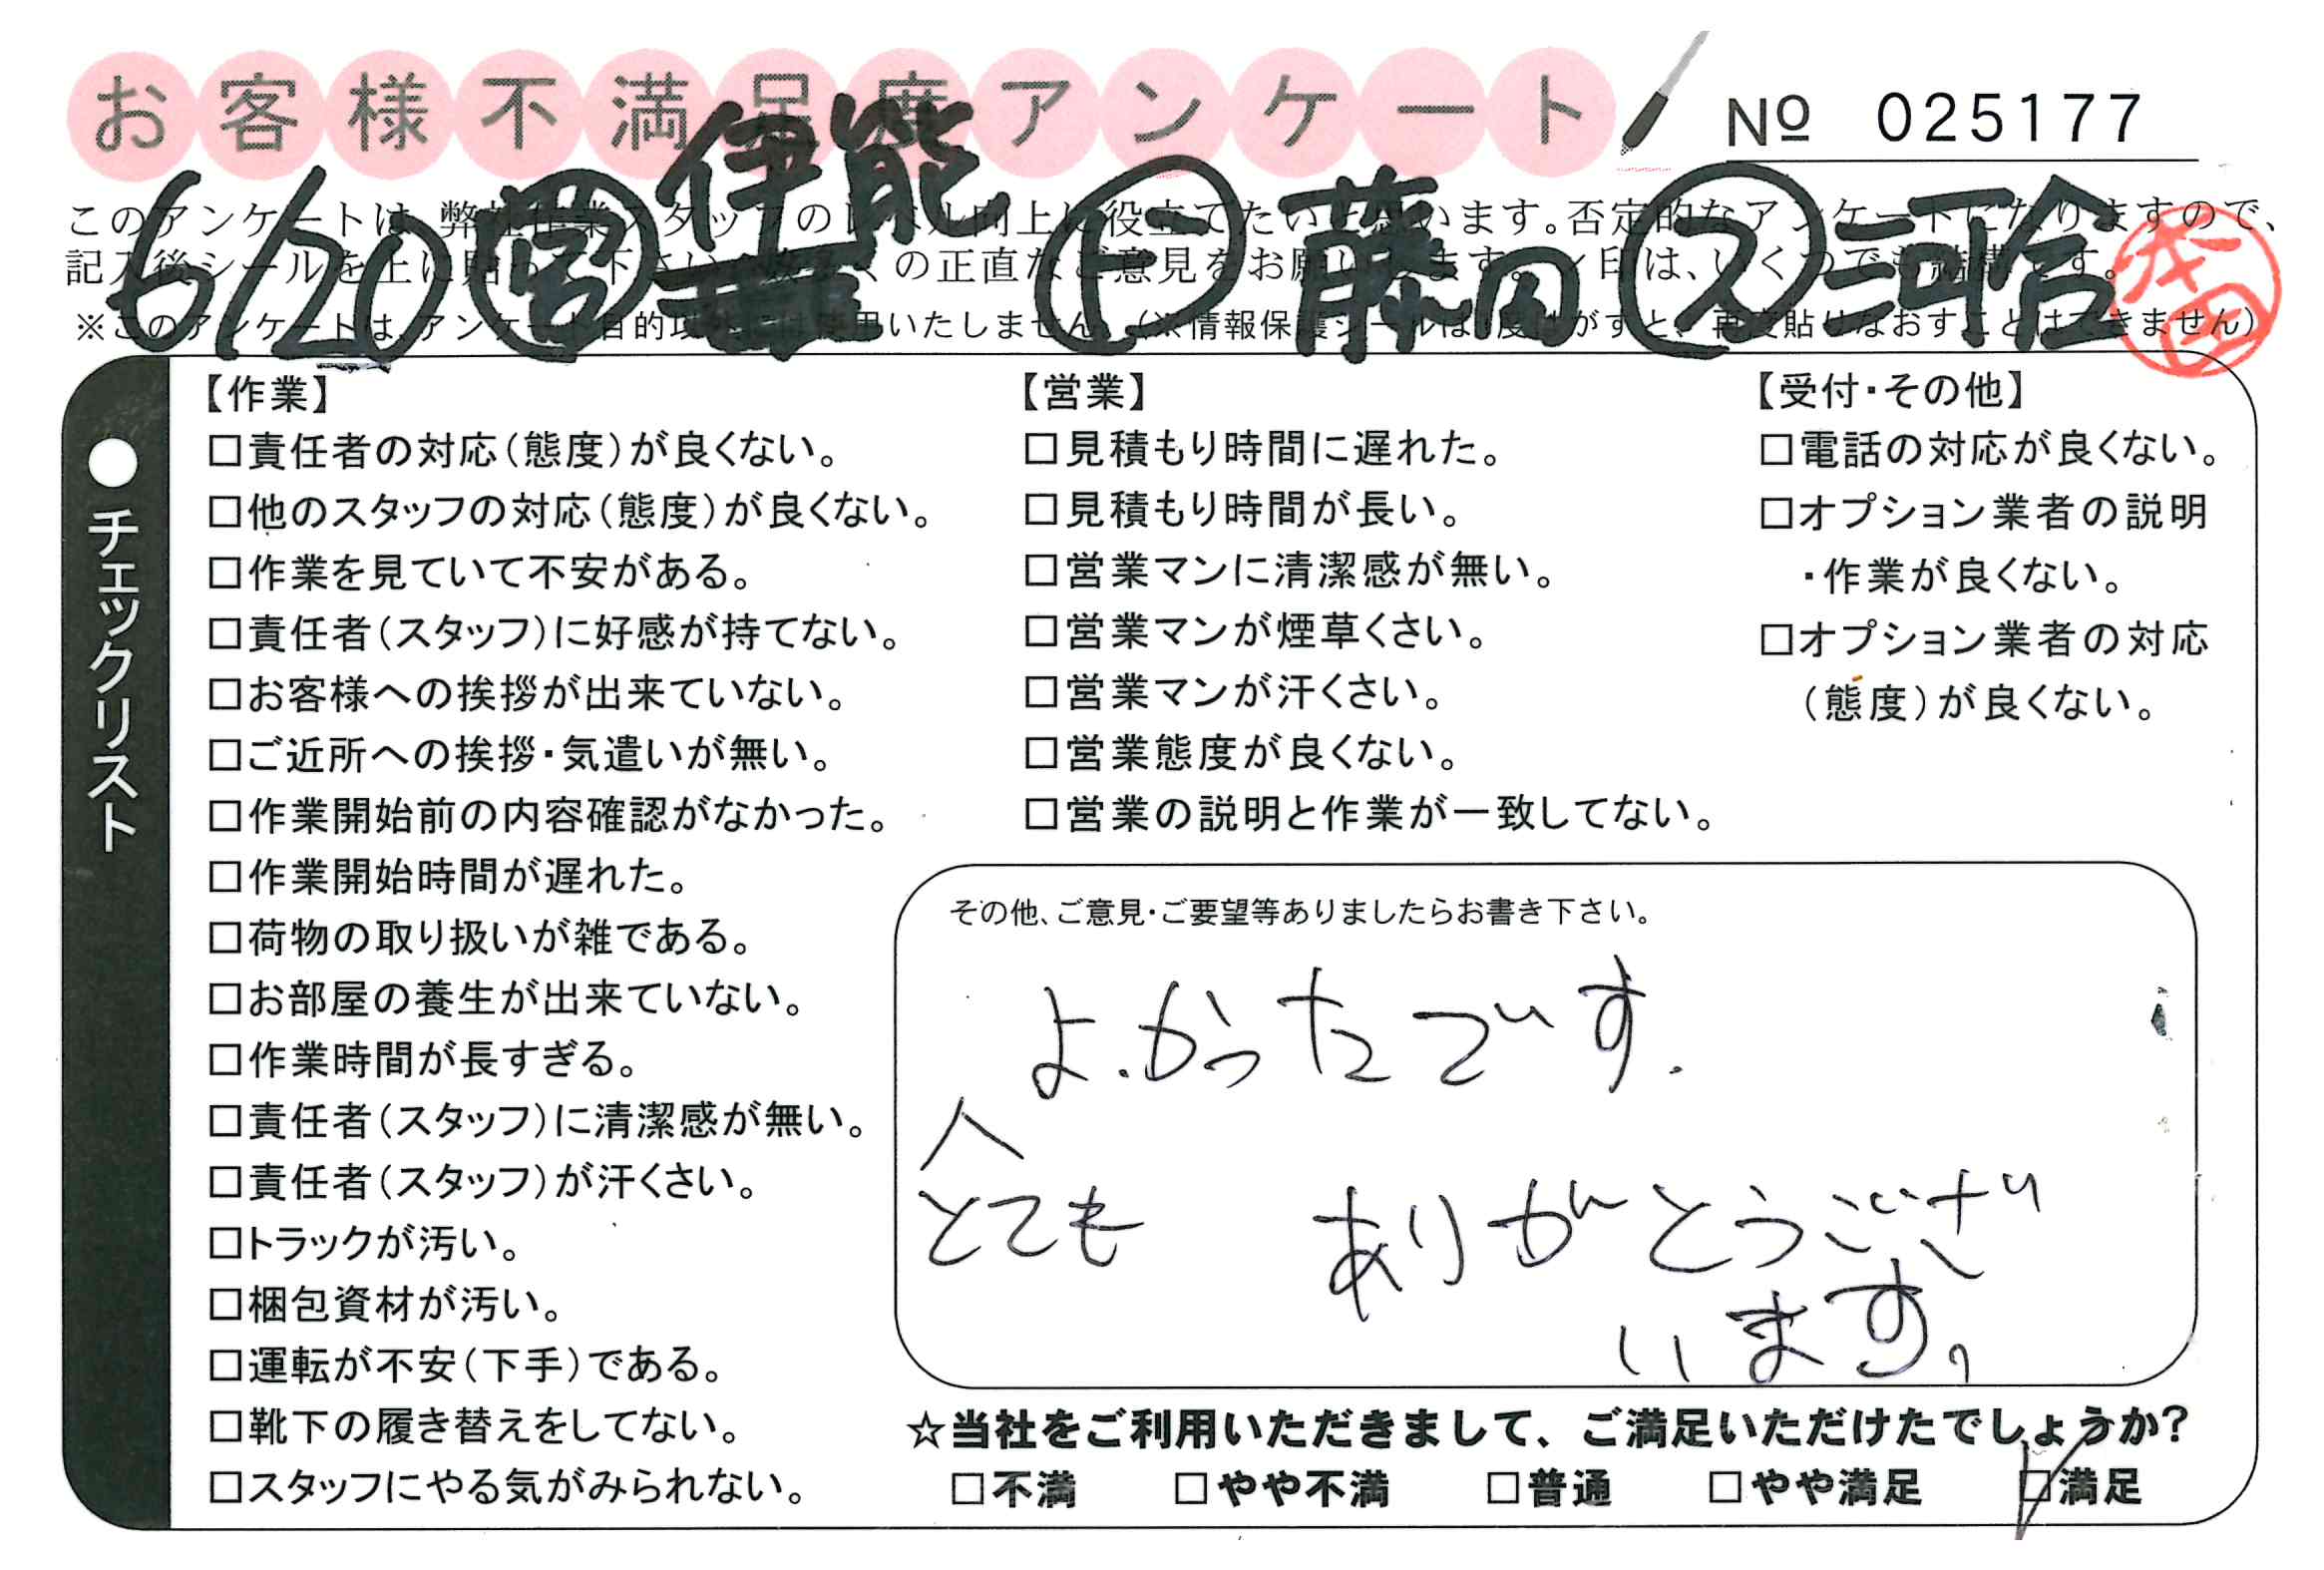 お客様不満足度アンケート
№ 025177
6/20 営 伊能 ド 藤田 ス 河合
本田
このアンケートは、弊社作業スタッフのレベル向上に役立てたいと思います。否定的なアンケートになりますので、
記入後シールを上に貼って下さい。数多くの正直なご意見をお願いします。レ印は、いくつでも結構です。
※このアンケートは、アンケート目的以外には使用いたしません。(※情報保護シールは1度はがすと、再度貼りなおすことはできません)
●チェックリスト
【作業】
□責任者の対応(態度)が良くない。
□他のスタッフの対応(態度)が良くない。
□作業を見ていて不安がある。
□責任者(スタッフ)に好感が持てない。
□お客様への挨拶が出来ていない。
□ご近所への挨拶・気遣いが無い。
□作業開始前の内容確認がなかった。
□作業開始時間が遅れた。
□荷物の取り扱いが雑である。
□お部屋の養生が出来ていない。
□作業時間が長すぎる。
□責任者(スタッフ)に清潔感が無い。
□責任者(スタッフ)が汗くさい。
□トラックが汚い。
□梱包資材が汚い。
□運転が不安(下手)である。
□靴下の履き替えをしてない。
□スタッフにやる気がみられない。
【営業】
□見積もり時間に遅れた。
□見積もり時間が長い。
□営業マンに清潔感が無い。
□営業マンが煙草くさい。
□営業マンが汗くさい。
□営業態度が良くない。
□営業の説明と作業が一致してない。
【受付・その他】
□電話の対応が良くない。
□オプション業者の説明
・作業が良くない。
□オプション業者の対応
(態度)が良くない。
その他、ご意見・ご要望等ありましたらお書き下さい。
よかったです.
とても ありがとうござ
います。
☆当社をご利用いただきまして、ご満足いただけたでしょうか?
□不満 □やや不満 □普通 □やや満足 ☑満足